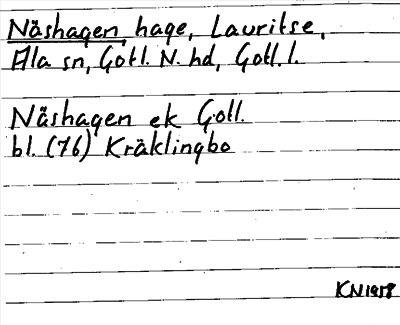 Näshagen, hage, Lauritse,
Ala sn, Gotl. N. hd, Gotl. l.
Näshagen ek Gotl.
bl. (76) Kräklingbo
KN 1958